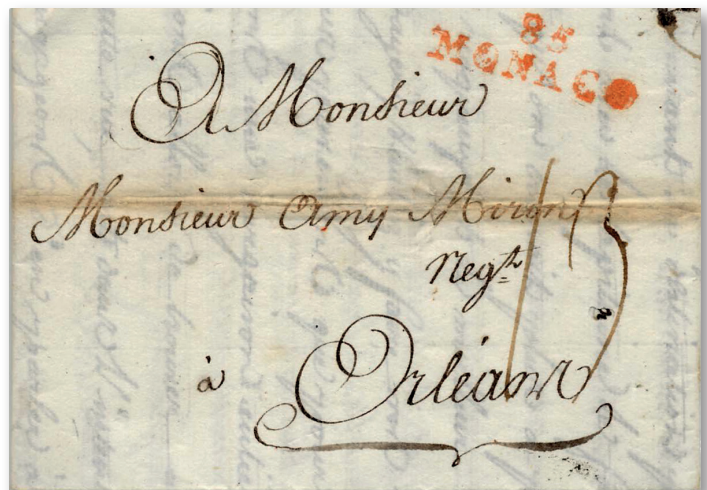 85
MONACO
A Monsieur
Monsieur Amy Miron
Negt
13
à Orléans